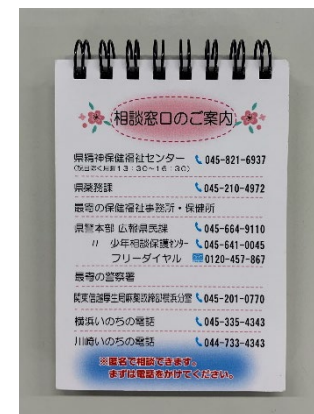 相談窓口のご案内
県精神保健福祉センター 045-821-6937
(祝日除く月~金 13:30~16:30)
県薬務課 045-210-4972
最寄の保健福祉事務所・保健所
県警本部 広報県民課 045-664-9110
〃 少年相談保護センター 045-641-0045
フリーダイヤル 0120-457-867
最寄の警察署
関東信越厚生局麻薬取締部横浜分室 045-201-0770
横浜いのちの電話 045-335-4343
川崎いのちの電話 044-733-4343
※匿名で相談できます。
まずは電話をかけてください。